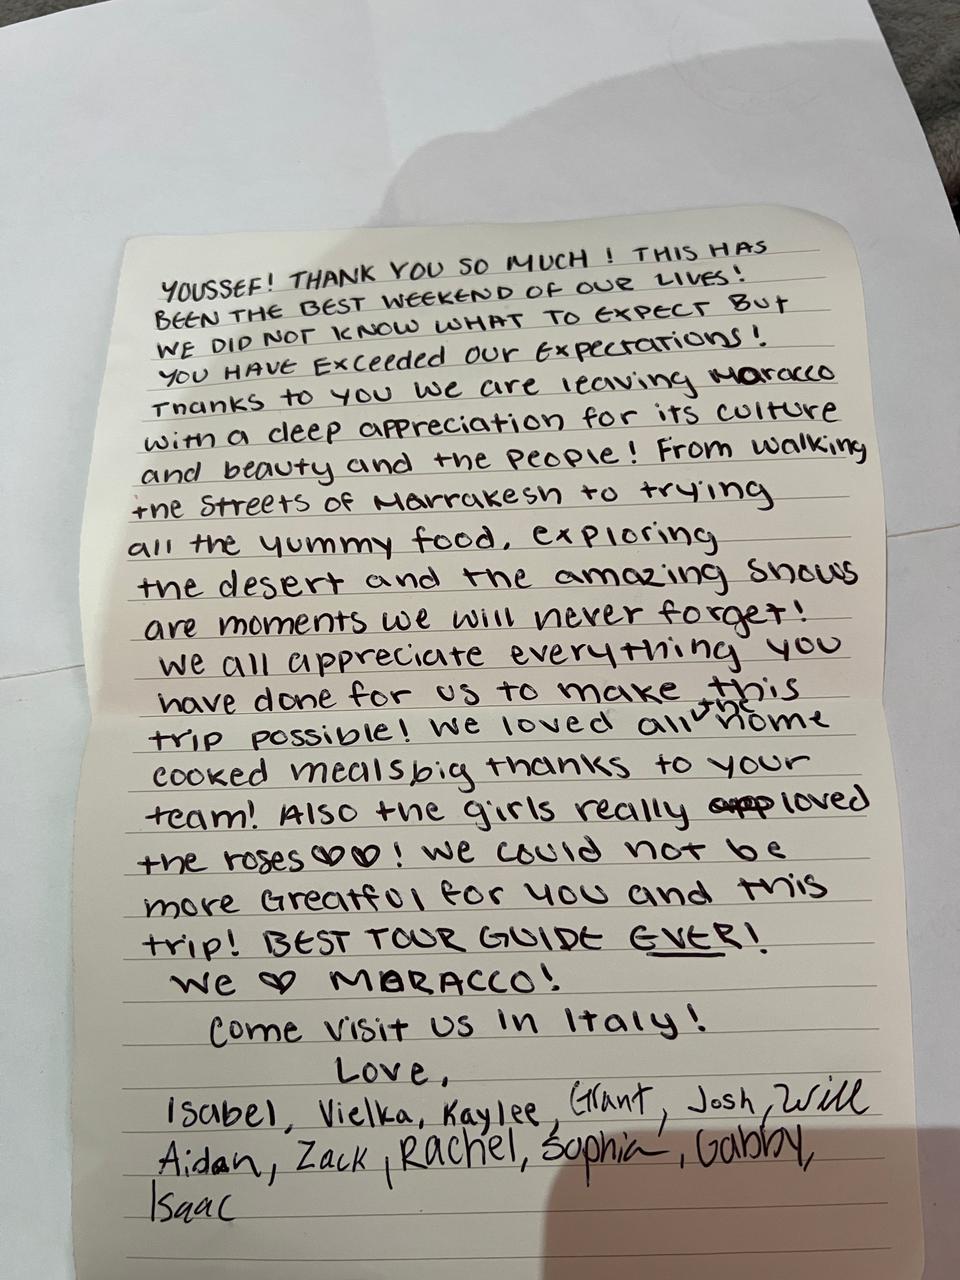 YOUSSEF! THANK YOU SO MUCH! THIS HAS
BEEN THE BEST WEEKEND OF OUR LIVES!
WE DID NOT KNOW WHAT TO EXPECT BUT
YOU HAVE Exceeded our Expectations!
Thanks to you we are leaving Moracco
with a deep appreciation for its culture
and beauty and the people! From walking
the streets of Marrakesh to trying
all the yummy food, exploring
the desert and the amazing shows
are moments we will never forget!
We all appreciate everything you
have done for us to make this
trip possible! We loved all the home
cooked meals big thanks to your
team! Also the girls really loved
the roses♡♡! We could not be
more Greatful for you and this
trip! BEST TOUR GUIDE EVER!
We ♡ MORACCO!
Come visit us in Italy!
Love,
Isabel, Vielka, Kaylee, Grant, Josh, Will
Aidan, Zack, Rachel, Sophia, Gabby,
Isaac